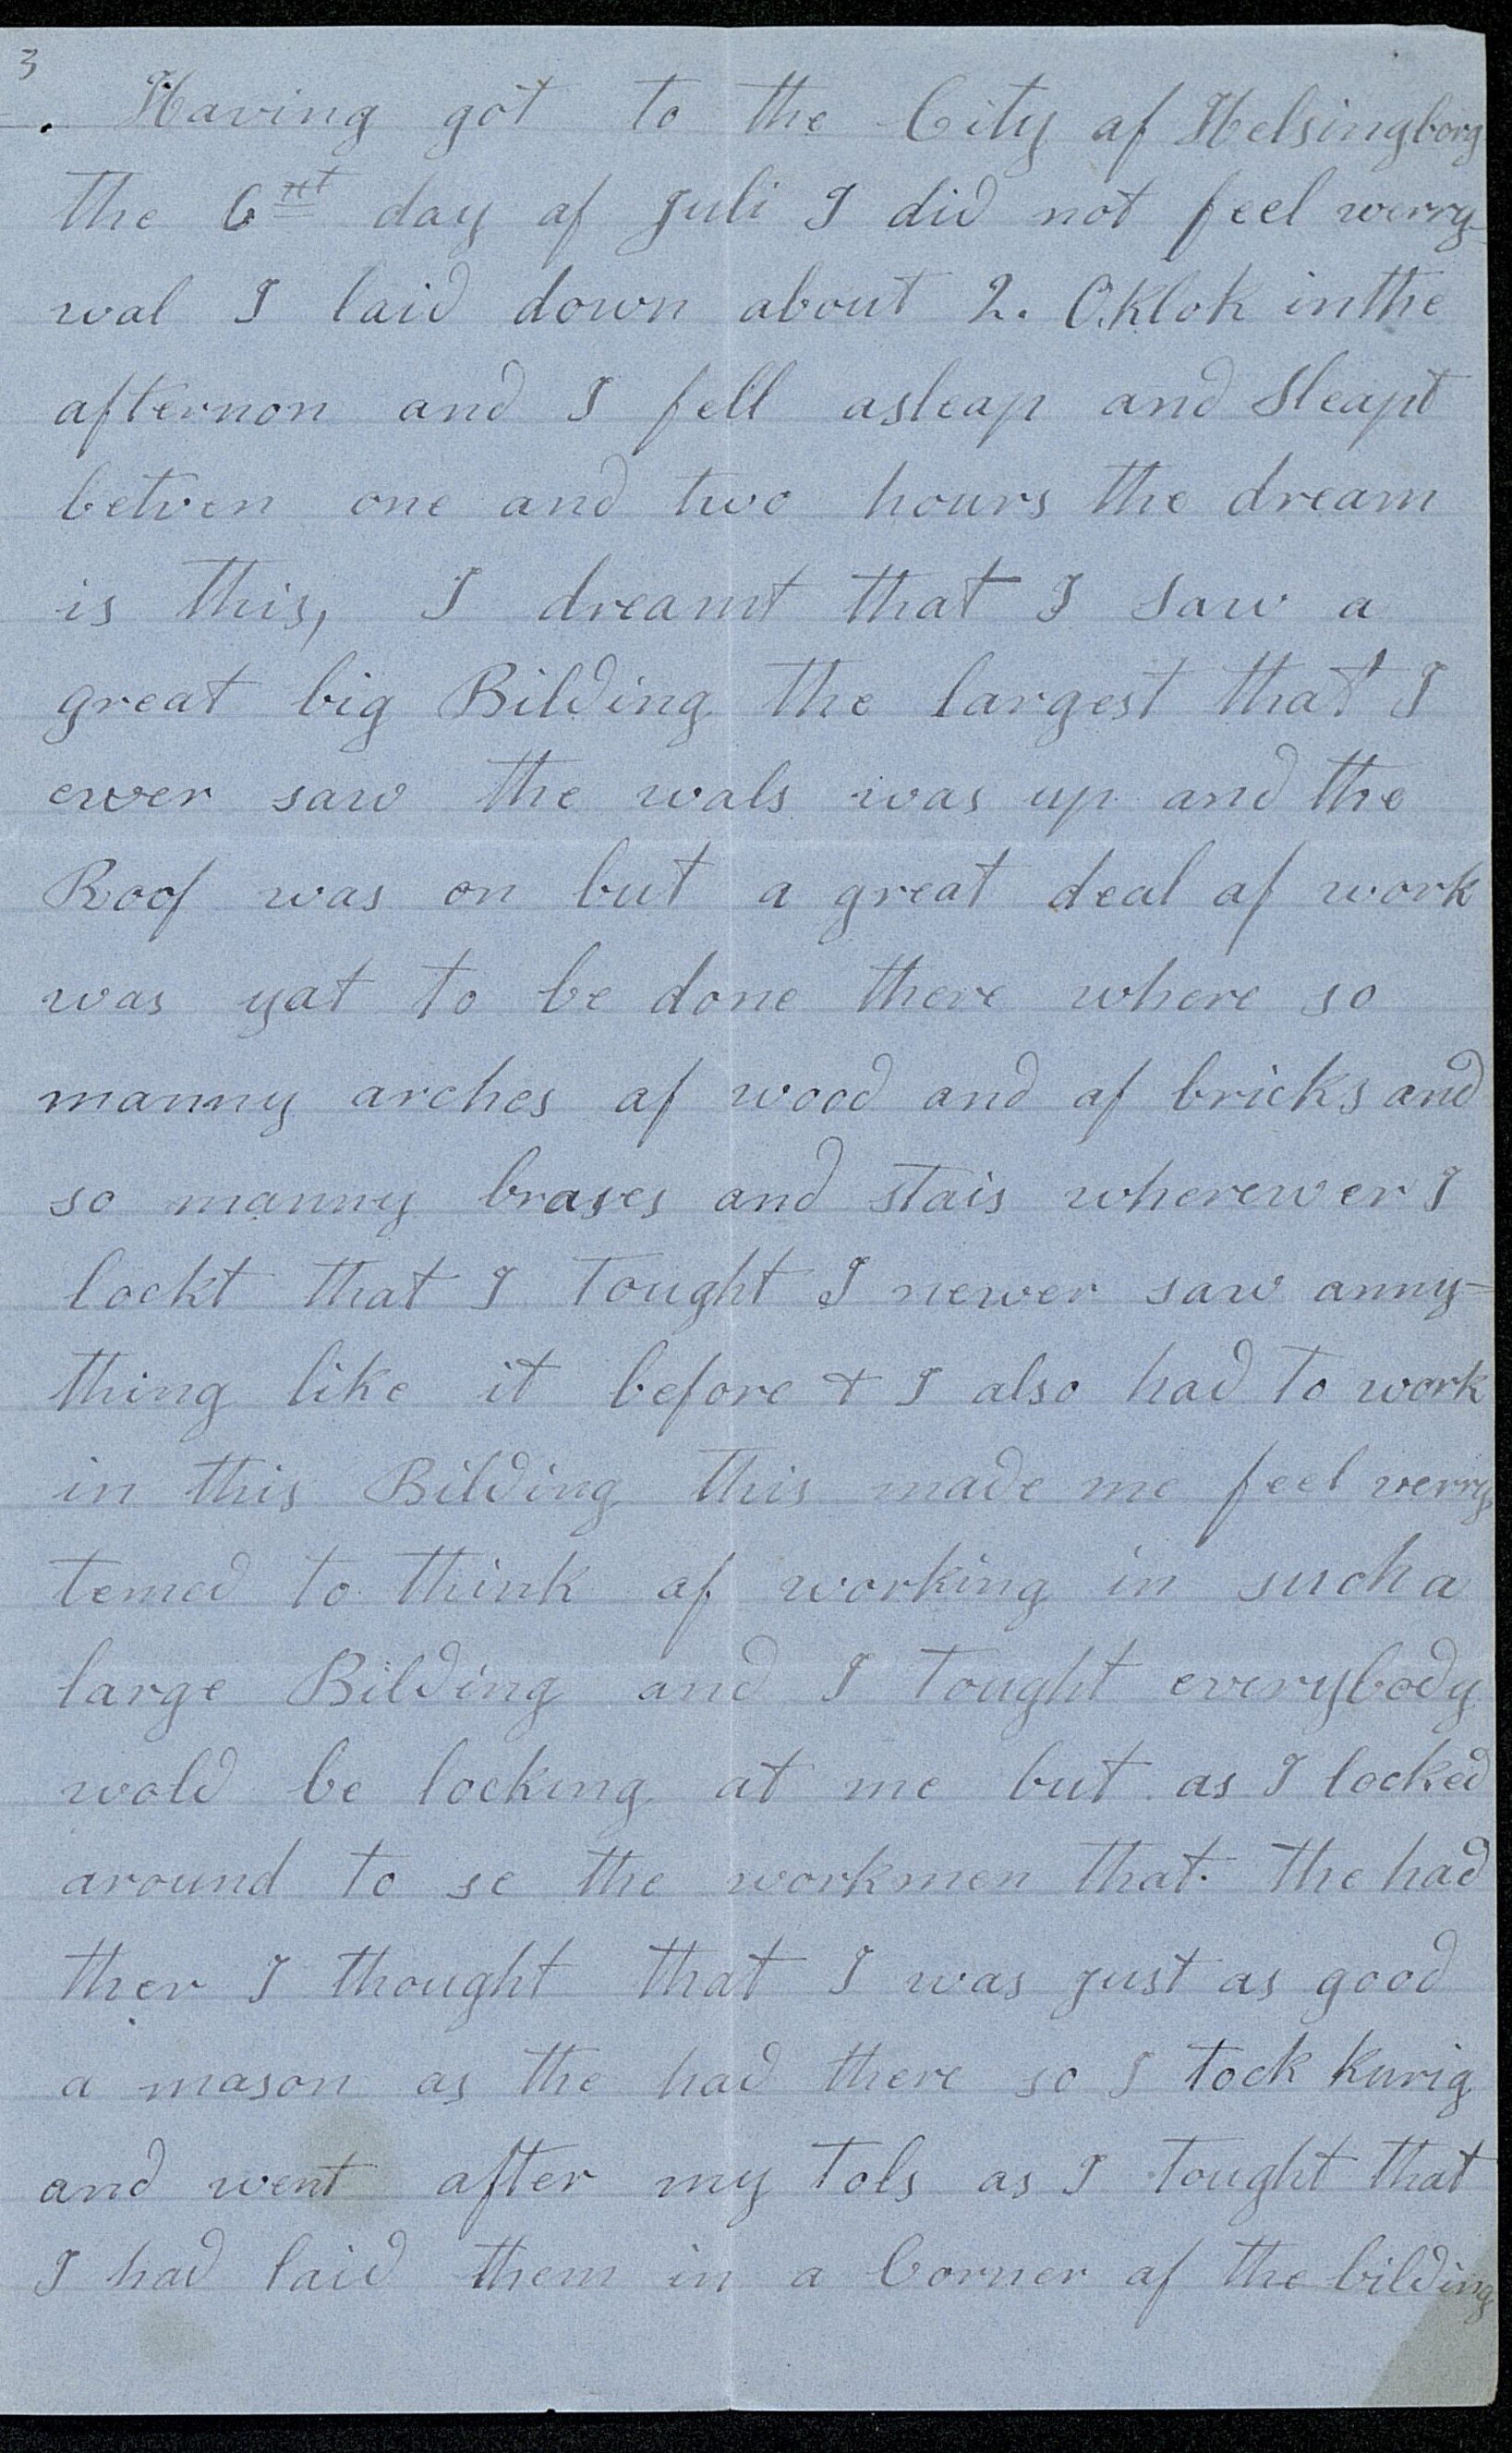 3
. Having got to the City af Helsingborg
the 6 day af Juli I did not feel werry
wal I laid down about 2. O.Klok inthe
afternon and I fell asleap and Sleapt
betven one and two hours the dream
is this, I dreamt that I saw a
great big Bilding the largest that I
ewer saw the wals was up and the
Roof was on but a great deal af work
was yat to be done there where so
manny arches af wood and af bricks and
so manny brases and stais wherewer I
lockt that I tought I newer saw anny=
thing like it before + I also had to work
in this Bilding this made me feel verry
temed to think af working in such a
large Bilding and I tought everybody
wold be locking at me but as I locked
around to se the workmen that the had
ther I thought that I was just as good
a mason as the had there so I tock Kurig
and went after my tols as I tought that
I had laid them in a Corner af the bilding